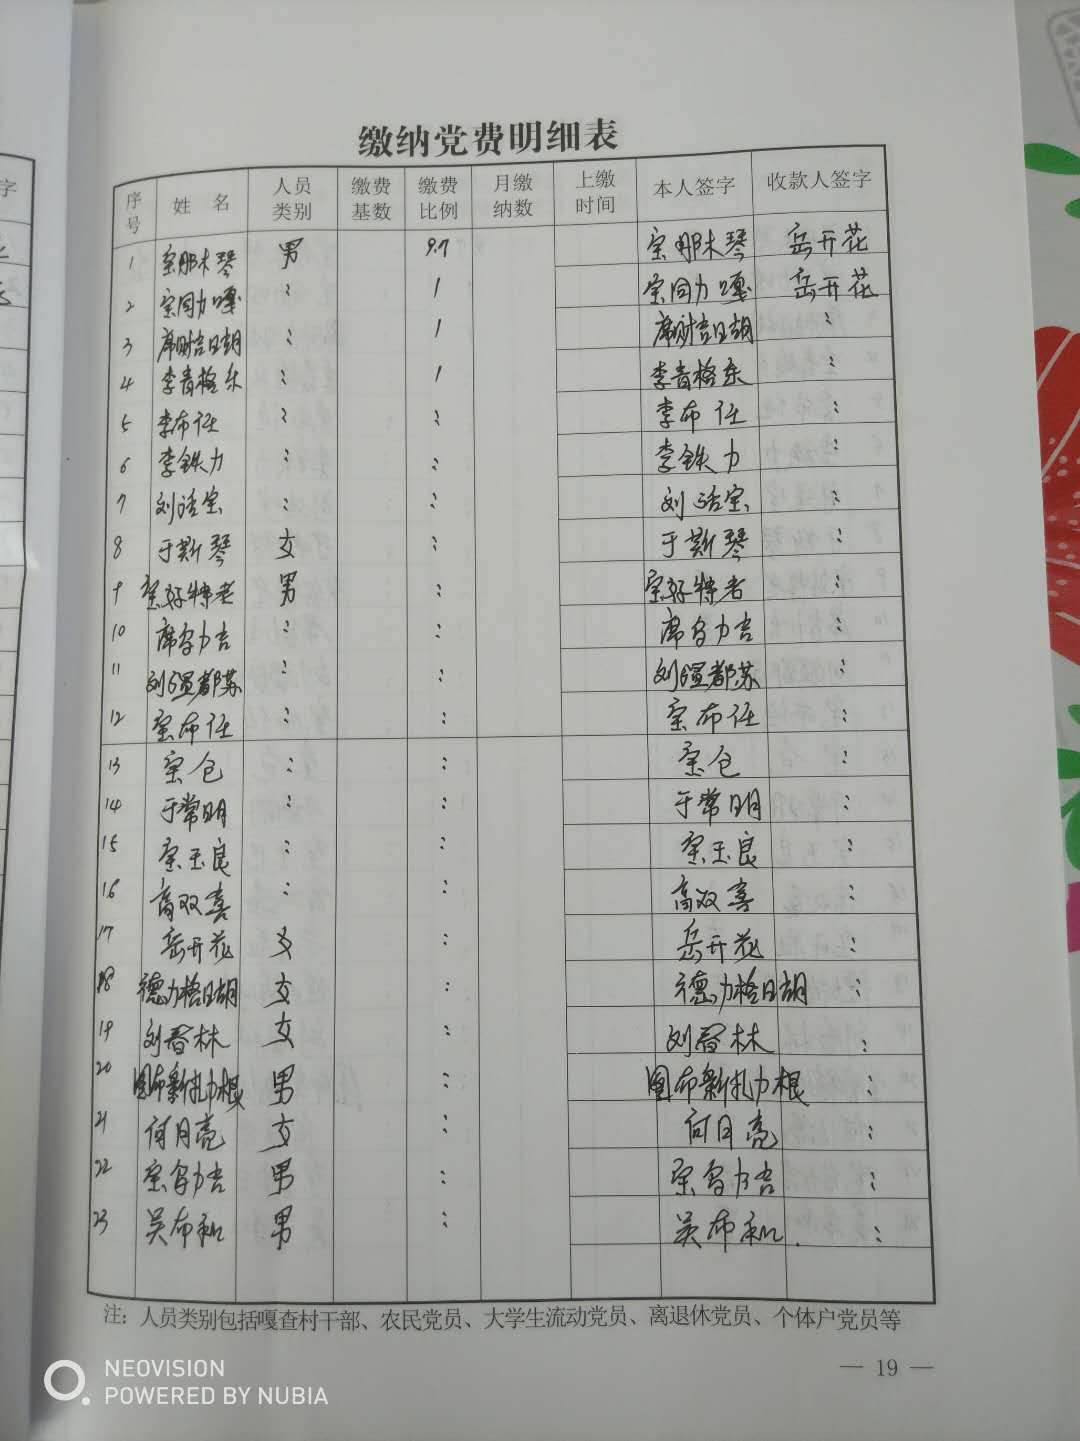 缴纳党费明细表
序号 姓名 人员类别 缴费基数 缴费比例 月缴纳数 上缴时间 本人签字 收款人签字
1 宝那木琴 男 9.7 宝那木琴 岳开花
2 宝同力嘎 〃 1 宝同力嘎 岳开花
3 席财吉日胡 〃 1 席财吉日胡 〃
4 李青格乐 〃 1 李青格乐 〃
5 李布仁 〃 〃 李布仁 〃
6 李铁力 〃 〃 李铁力 〃
7 刘活宝 〃 〃 刘活宝 〃
8 于斯琴 女 〃 于斯琴 〃
9 宝好特老 男 〃 宝好特老 〃
10 席乌力吉 〃 〃 席乌力吉 〃
11 刘 都苏 〃 〃 刘 都苏 〃
12 宝布仁 〃 〃 宝布仁 〃
13 宝仓 〃 〃 宝仓 〃
14 于常明 〃 〃 于常明 〃
15 宝玉良 〃 〃 宝玉良 〃
16 高双喜 〃 〃 高双喜 〃
17 岳开花 女 〃 岳开花 〃
18 德力格日胡 女 〃 德力格日胡 〃
19 刘春林 女 〃 刘春林 〃
20 图布新扎力根 男 〃 图布新扎力根 〃
21 何月亮 女 〃 何月亮 〃
22 宝乌力吉 男 〃 宝乌力吉 〃
23 吴布和 男 〃 吴布和 〃
注：人员类别包括嘎查村干部、农民党员、大学生流动党员、离退休党员、个体户党员等
— 19 —
NEOVISION
POWERED BY NUBIA